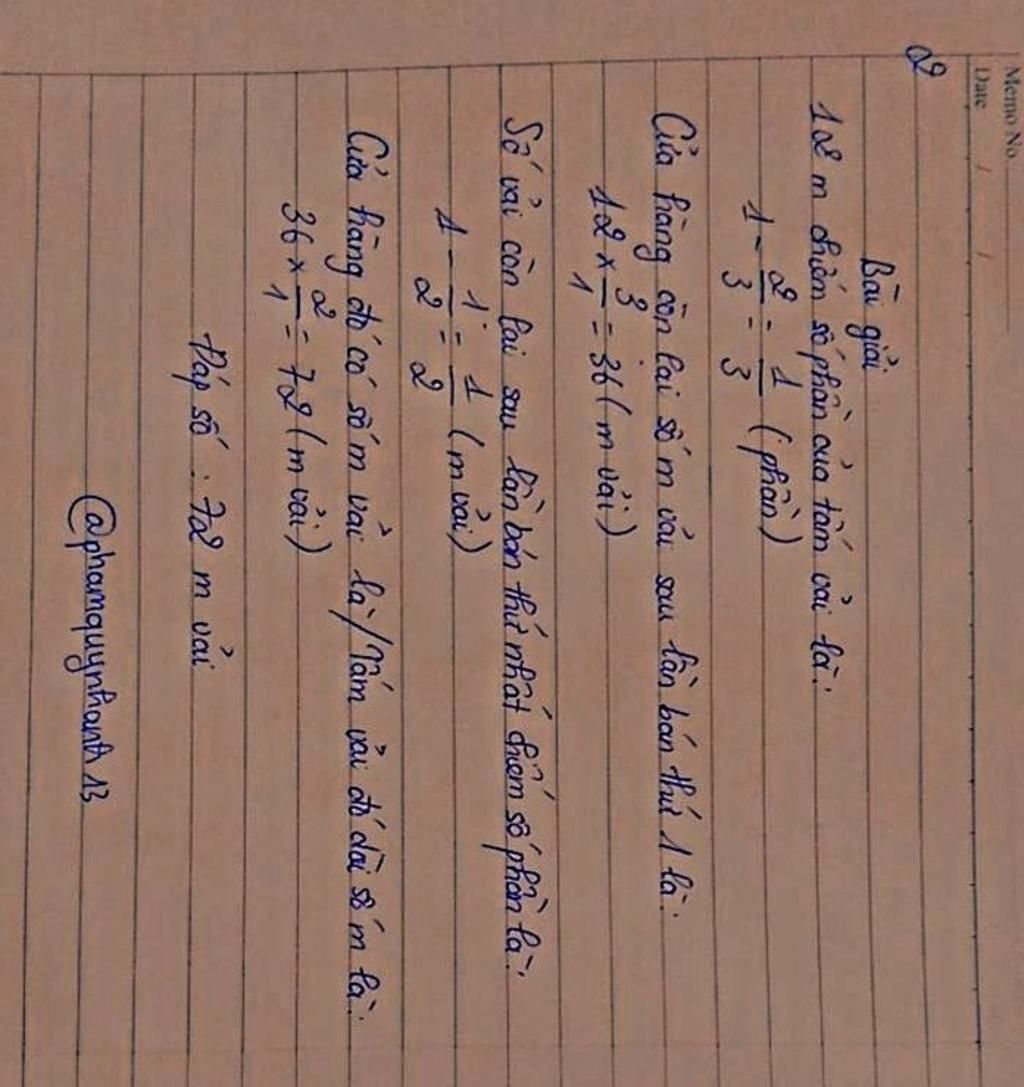 Memo No.
Date / /
02
Bài giải
12 m chiếm số phần của tấm vải là:
1 - 2/3 = 1/3 (phần)
Cửa hàng còn lại số m vải sau lần bán thứ 1 là:
12 × 3/1 = 36 (m vải)
Số vải còn lại sau lần bán thứ nhất chiếm số phần là:
1 - 1/2 = 1/2 (m vải)
Cửa hàng đó có số m vải là/Tấm vải đó dài số m là:
36 × 2/1 = 72 (m vải)
Đáp số : 72 m vải
@phamquynhanh13